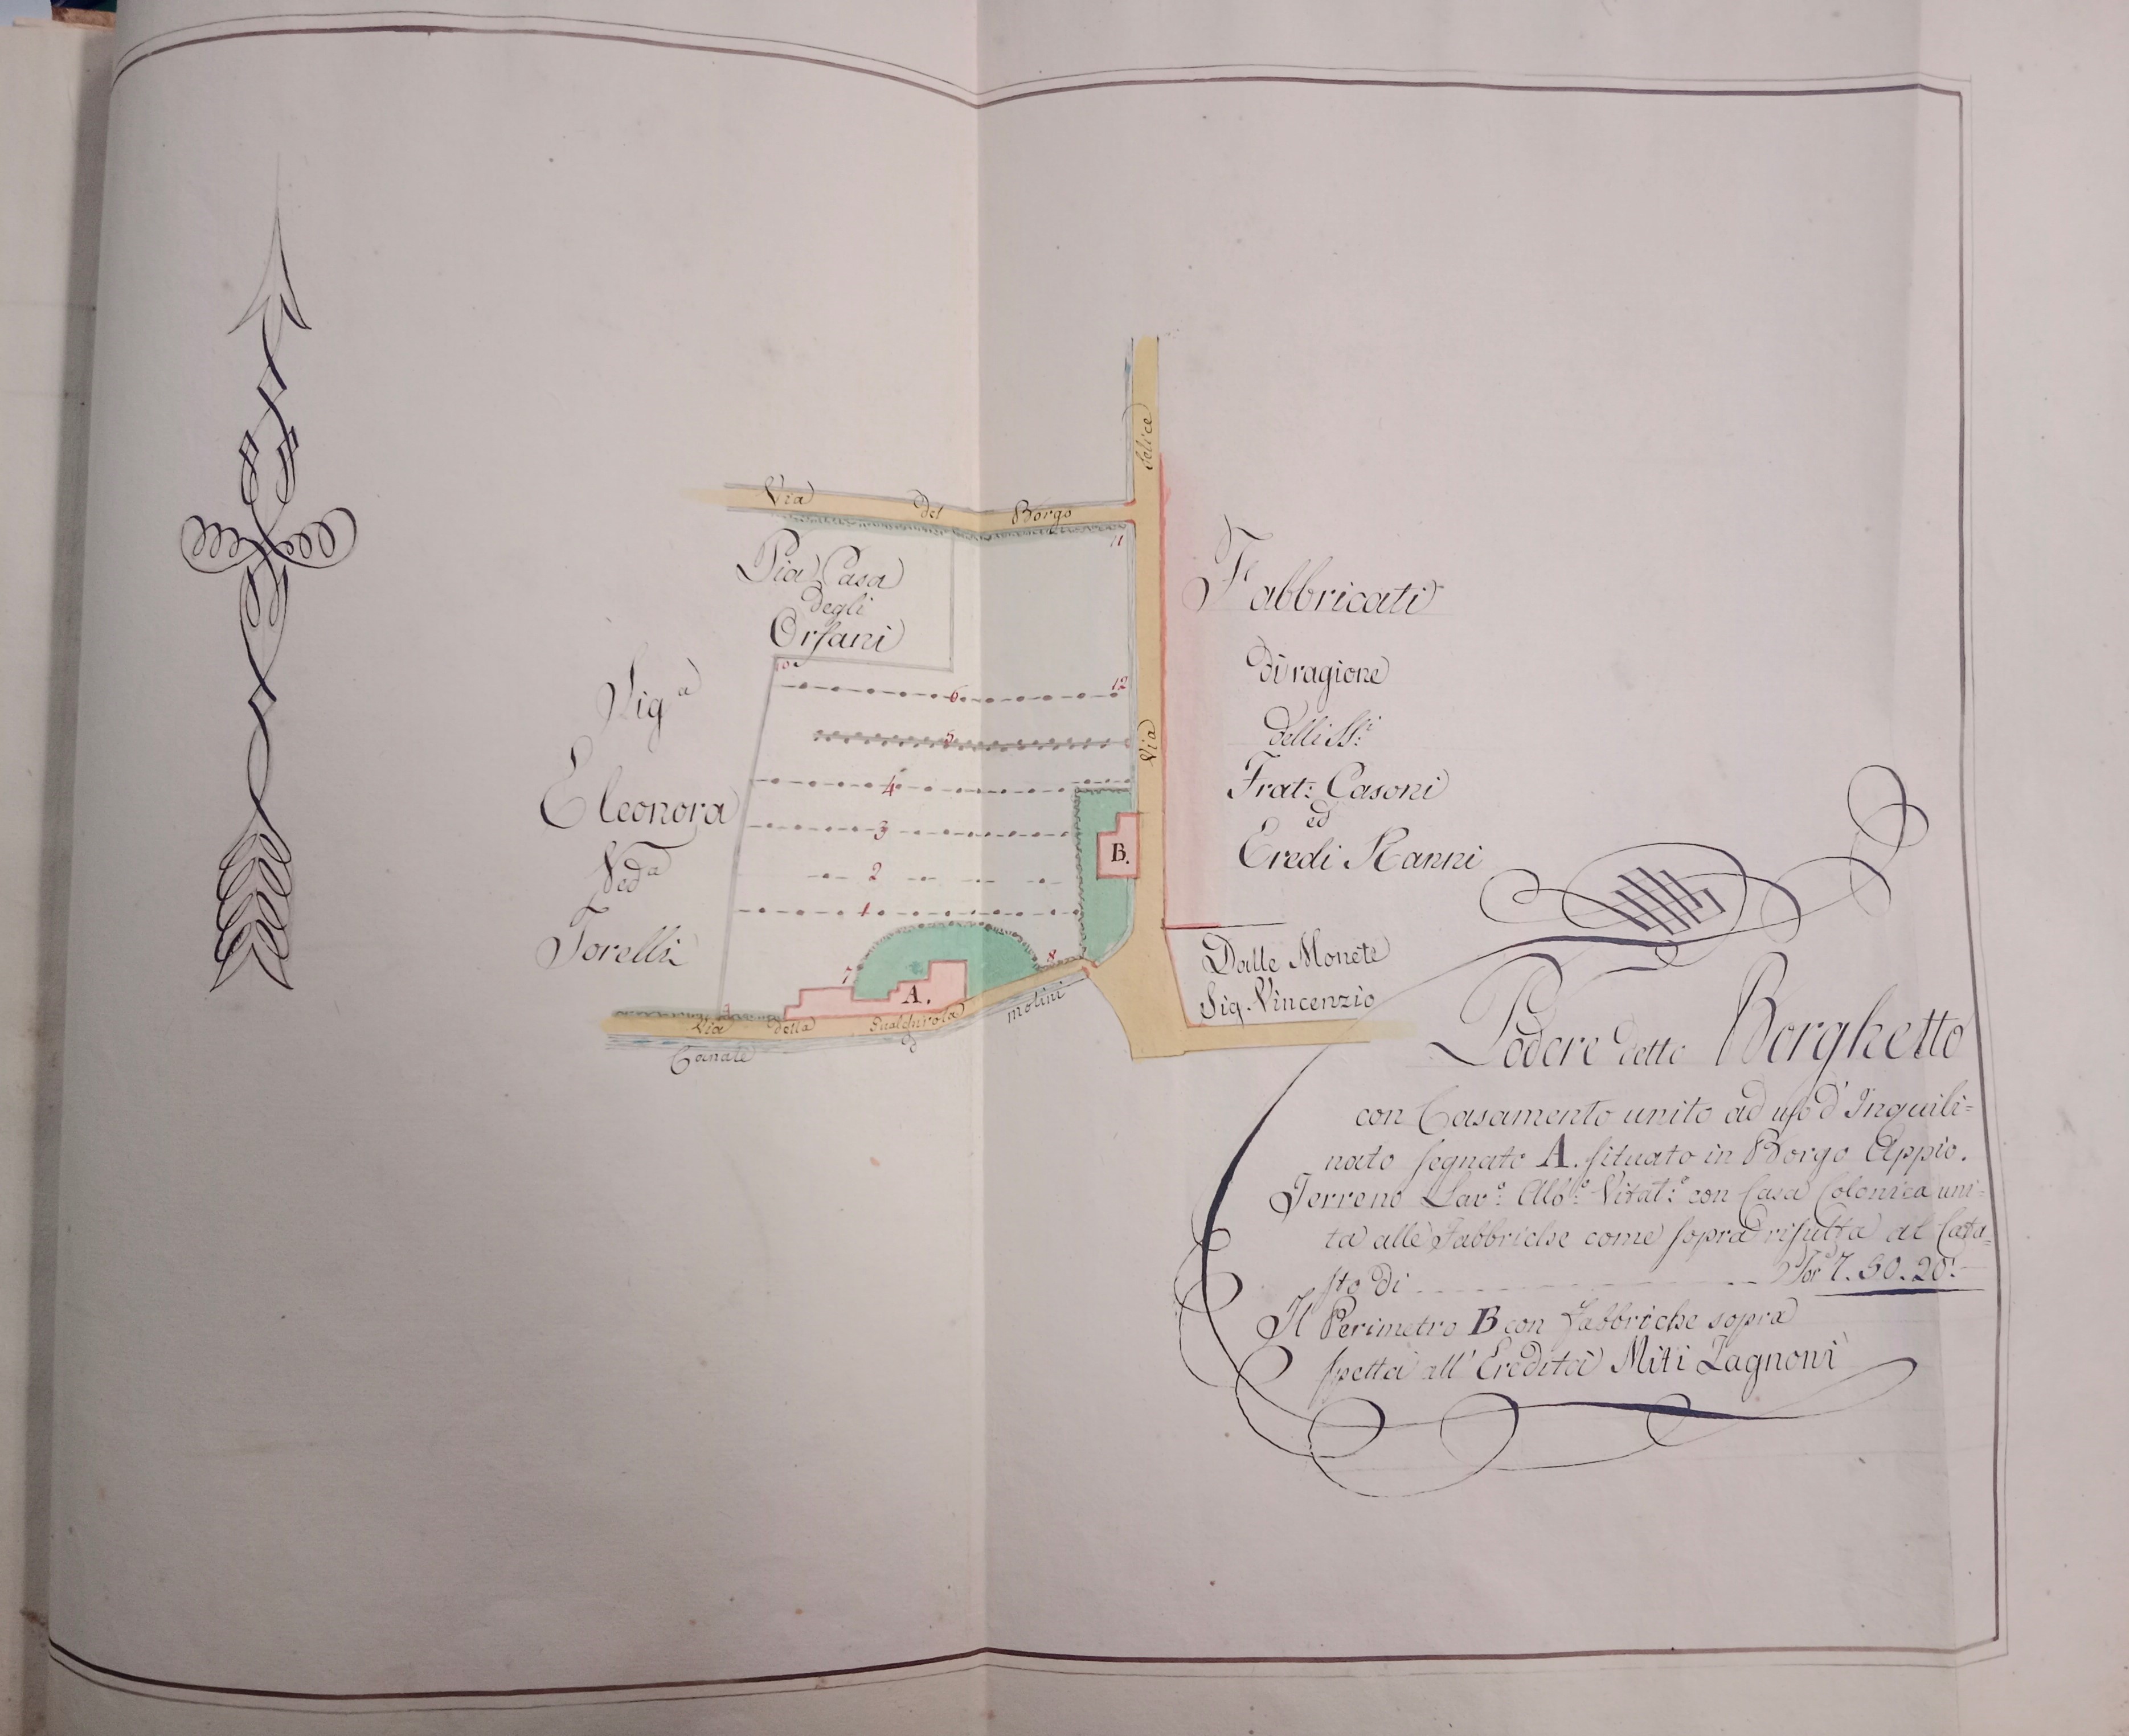 Via Selice
Via del Borgo
11
Pia Casa
degli
Orfani
10
6
12
5
4
3
2
1
7
8
9
A.
B.
Sig.ª
Eleonora
Ved.ª
Torelli
Via della Gualchirola
Canale d molini
Fabbricati
di ragione
delli SS.ri
Frat: Casoni
ed
Eredi Zanni
Dalle Monete
Sig. Vincenzio
Podere detto Borghetto
con Casamento unito ad uso d'Inquili=
nato segnato A. situato in Borgo Appio.
Terreno Lav:º Alb:º Vitat:º con Casa Colonica uni=
ta alle Fabbriche come sopra risulta al Cata=
sto di Tor.e 7. 50. 20.
Il Perimetro B con Fabbriche sopra
spetta all'Eredità Miti Zagnoni